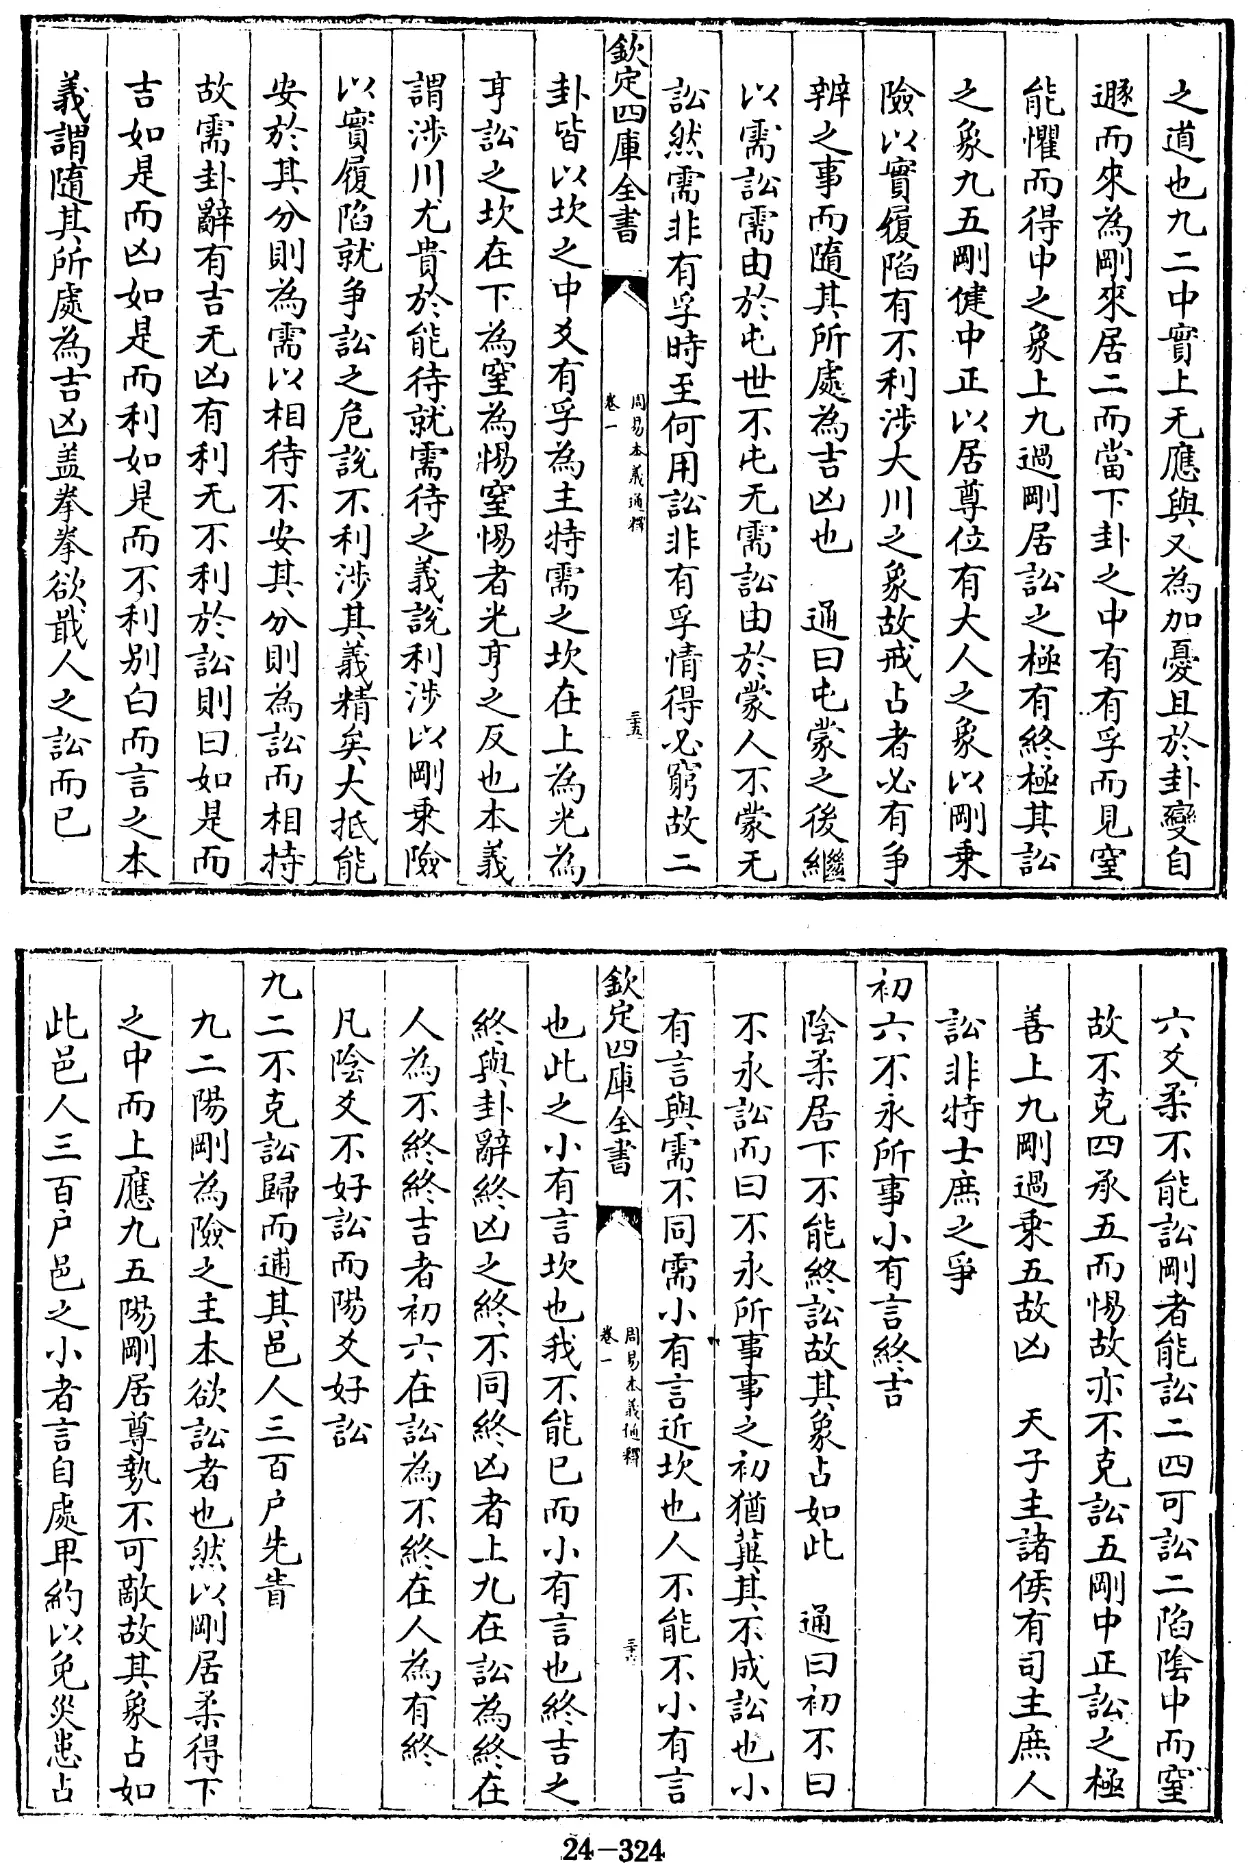 之道也九二中實上无應與又為加憂且於卦變自
遯而來為剛來居二而當下卦之中有有孚而見窒
能懼而得中之象上九過剛居訟之極有終極其訟
之象九五剛健中正以居尊位有大人之象以剛乗
險以實履陷有不利涉大川之象故戒占者必有争
辨之事而隨其所處為吉凶也　通曰屯蒙之後繼
以需訟需由於屯世不屯无需訟由於蒙人不蒙无
訟然需非有孚時至何用訟非有孚情得必窮故二
欽定四庫全書
周易本義通釋
卷一
三十五
卦皆以坎之中爻有孚為主特需之坎在上為光為
亨訟之坎在下為窒為惕窒惕者光亨之反也本義
謂涉川尤貴於能待就需待之義說利涉以剛乗險
以實履陷就争訟之危說不利涉其義精矣大抵能
安於其分則為需以相待不安其分則為訟而相持
故需卦辭有吉无凶有利无不利於訟則曰如是而
吉如是而凶如是而利如是而不利别白而言之本
義謂隨其所處為吉凶盖拳拳欲戢人之訟而已
六爻柔不能訟剛者能訟二四可訟二陷隂中而窒
故不克四承五而惕故亦不克訟五剛中正訟之極
善上九剛過乗五故凶　天子主諸侯有司主庶人
訟非特士庶之爭
初六不永所事小有言終吉
隂柔居下不能終訟故其象占如此　通曰初不曰
不永訟而曰不永所事事之初猶冀其不成訟也小
有言與需不同需小有言近坎也人不能不小有言
欽定四庫全書
周易本義通釋
卷一
三十六
也此之小有言坎也我不能已而小有言也終吉之
終與卦辭終凶之終不同終凶者上九在訟為終在
人為不終終吉者初六在訟為不終在人為有終
凡隂爻不好訟而陽爻好訟
九二不克訟歸而逋其邑人三百户先眚
九二陽剛為險之主本欲訟者也然以剛居柔得下
之中而上應九五陽剛居尊勢不可敵故其象占如
此邑人三百户邑之小者言自處卑約以免災患占
24-324